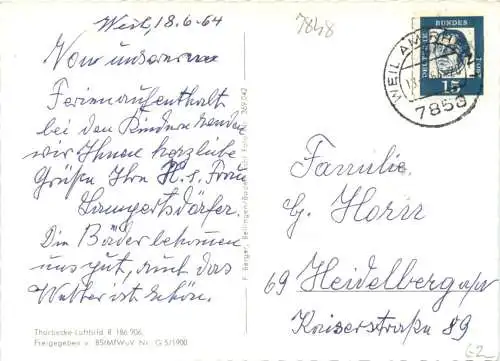 Weil, 18.6.64
7848
Von unserem
Ferienaufenthalt
bei den Kindern senden
wir Ihnen herzliche
Grüße Ihre H. u. Frau
Langertsdörfer.
Die Bäder bekommen
uns gut, auch das
Wetter ist schön.
Thorbecke-Luftbild R 186 906,
Freigegeben v. BStMfWuV Nr. G 5/1900
369 042
F. Berger, Bellingen/Baden
DEUTSCHE BUNDESPOST
15
WEIL AM RHEIN
7858
Familie
G. Horir
69 Heidelberg a/N
Kaiserstraße 89